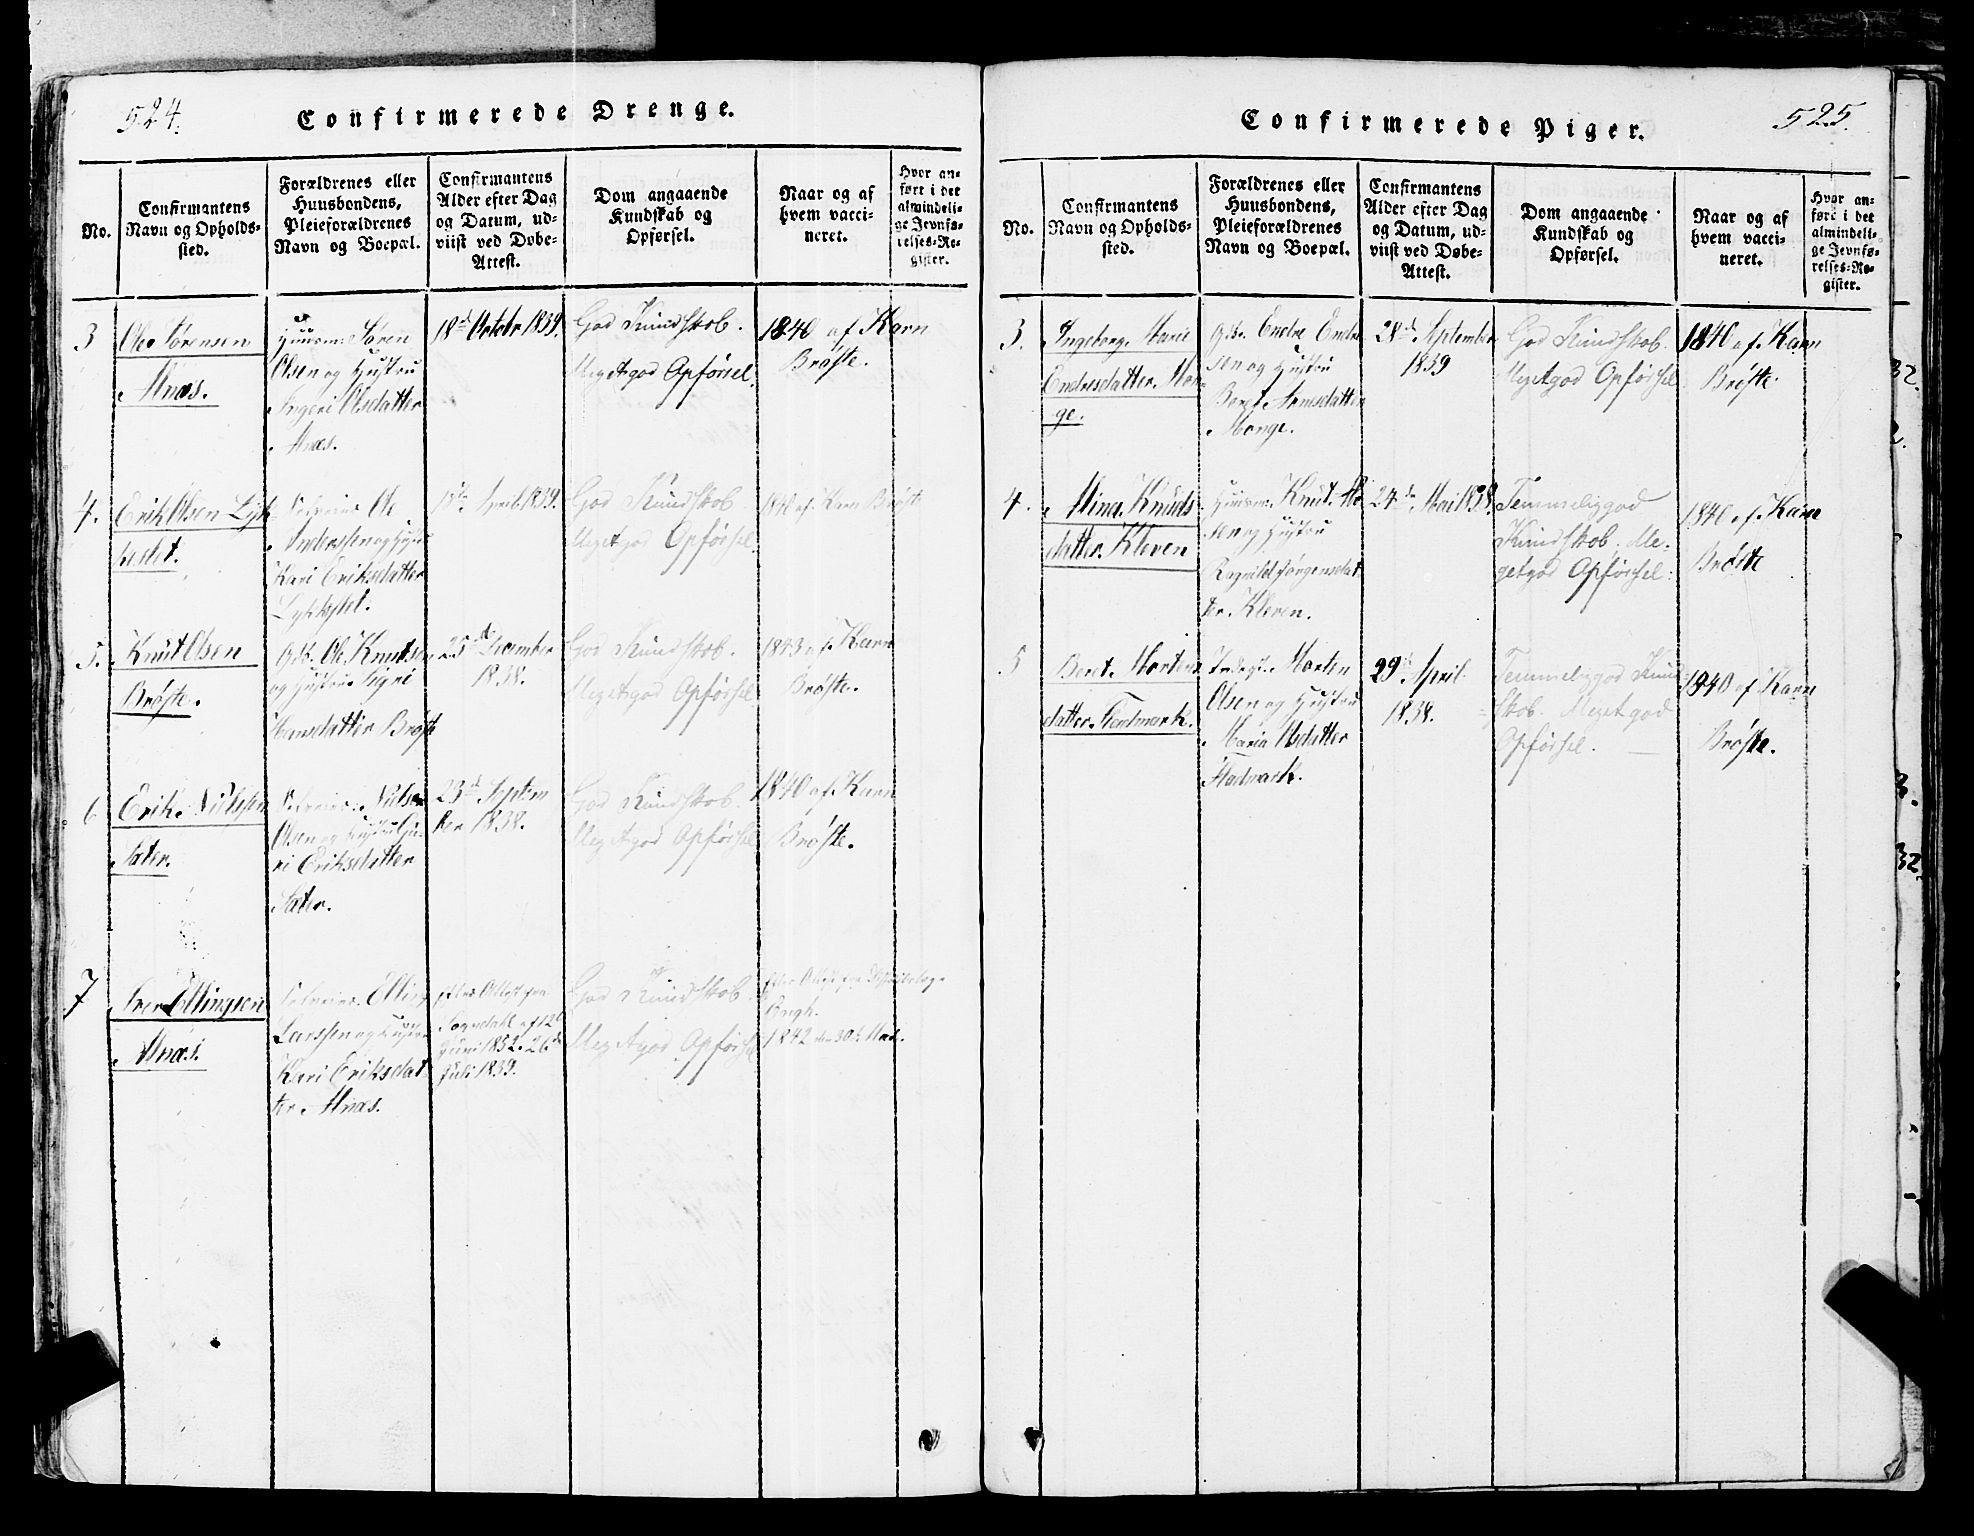 524.
Confirmerede Drenge.
No.
Confirmantens
Navn og Opholds-
sted.
Forældrenes eller
Huusbondens,
Pleieforældrenes
Navn og Boepæl.
Confirmantens
Alder efter Dag
og Datum, ud-
viist ved Døbe-
Attest.
Dom angaaende
Kundskab og
Opførsel.
Naar og af
hvem vacci-
neret.
Hvor an-
ført i det
almindeli-
ge Jevnfø-
relses-Re-
gister.
3
Ole Sørensen
Alnæs.
Huusm: Søren
Olsen og Hustru
Ingeri Olsdatter
Alnæs.
18de Octobr 1839.
God Kundskab.
Meget god Opførsel.
1840 af Karn
Brøste.
4.
Erik Olsen Lyk
kestet.
Ole
Anderssen og Hustru
Kari Eriksdatter
Lykkestet.
April 1839.
God Kundskab.
Meget god Opførsel.
1840 af Karn Brøste
5.
Knut Olsen
Brøste.
Gdb. Ole Knutsen
og Hustru Sigri
Hansdatter Brøste
25de December
1838.
God Kundskab.
Meget god Opførsel.
1843 af Karn
Brøste.
6
Erik Nielssen
Sæter.
Niels
Olsen og Hustru Gu-
ri Eriksdatter
Sæter.
23de Septem
ber 1838.
God Kundskab.
Meget god Opførsel
1840 af Karn
Brøste.
7
Iver Ellingsen
Alnæs.
Elling
Larssen og Hustru
Kari Eriksdat
ter Alnæs.
Efter Attest fra
Sogndahl af 12te
Juni 1852. 26de
Juli 1839.
God Kundskab.
Meget god Opførsel
Efter Attest fra
1842 den 30te
525.
Confirmerede Piger.
No.
Confirmantens
Navn og Opholds-
sted.
Forældrenes eller
Huusbondens,
Pleieforældrenes
Navn og Boepæl.
Confirmantens
Alder efter Dag
og Datum, ud-
viist ved Døbe-
Attest.
Dom angaaende
Kundskab og
Opførsel.
Naar og af
hvem vacci-
neret.
Hvor an-
ført i det
almindeli-
ge Jevnfø-
relses-Re-
gister.
3.
Ingeborg Marie
Endresdatter Mon-
ge.
Gdbr. Endre Endre
sen og Hustru
Beret Arnesdatter
Monge.
28de September
1839
God Kundskab.
Meget god Opførsel.
1840 af Karn
Brøste.
4.
Mina Knuds
datter Kleven
Huusm. Knut
sen og Hustru
Ragnild Jørgensdat
ter Kleven.
24de Mai 1838.
Temmelig god
Kundskab. Me-
get god Opførsel.
1840 af Karn
Brøste
5
Beret Mortens
datter Flatmark.
Morten
Olsen og Hustru
Maria Olsdatter
Flatmark.
29de April
1838.
Temmelig god Kund
skab. Meget god
Opførsel.
1840 af Karn
Brøste.